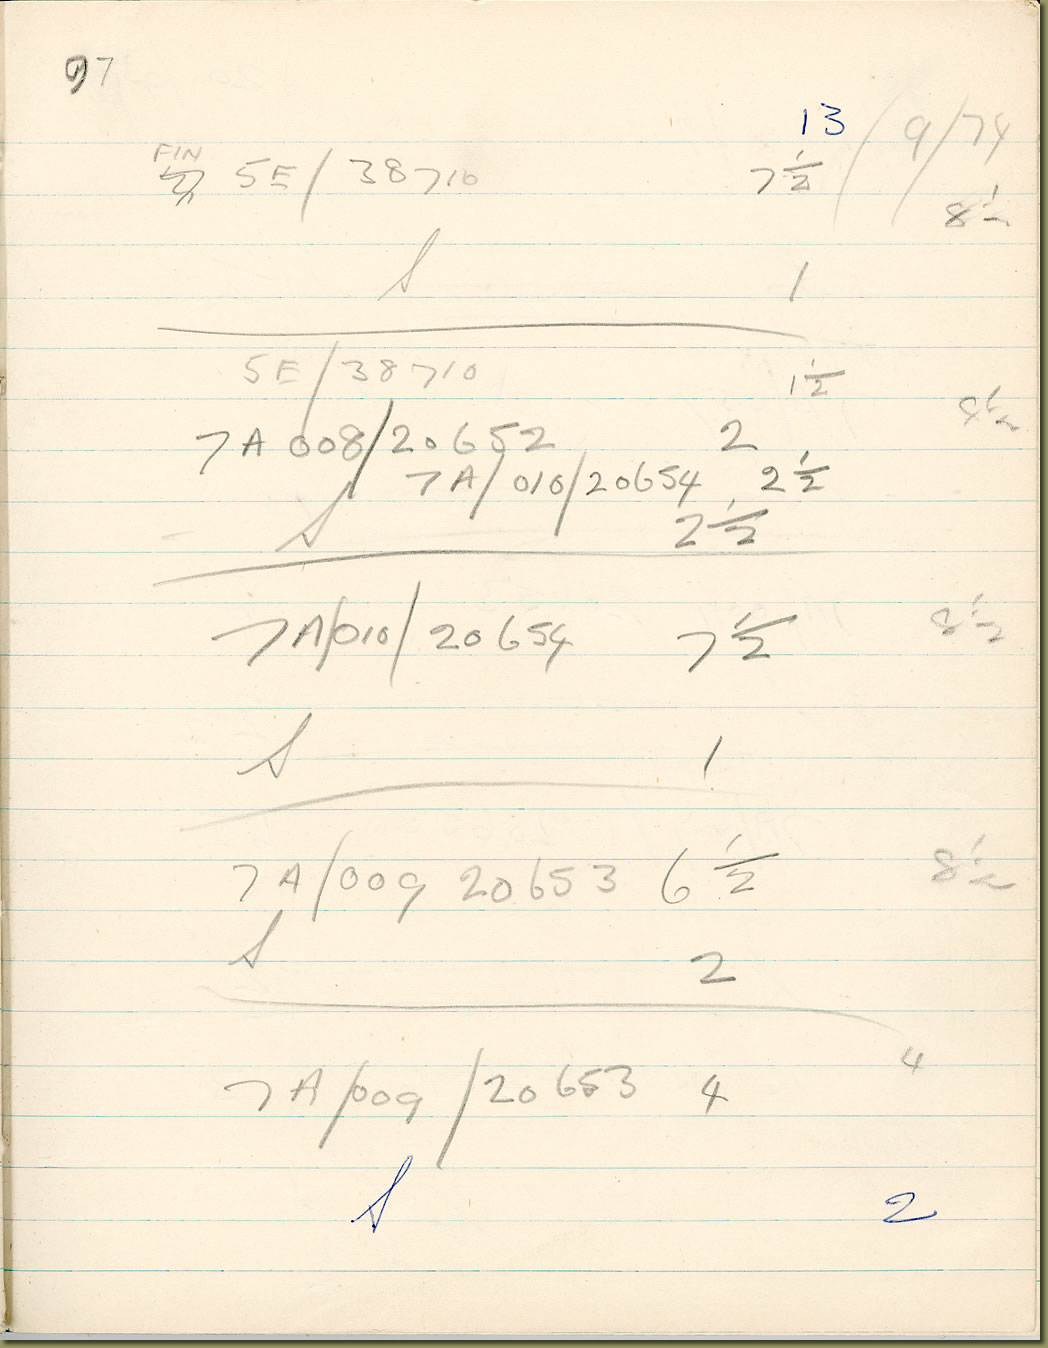 97
13/9/74
FIN 5E/38710 7 1/2
8 1/2
S 1
5E/38710 1 1/2
8 1/2
7A 008/20652 2
7A/010/20654 2 1/2
S 2 1/2
7A/010/20654 7 1/2 8 1/2
S 1
7A/009 20653 6 1/2 8 1/2
S 2
4
7A/009/20653 4
S 2